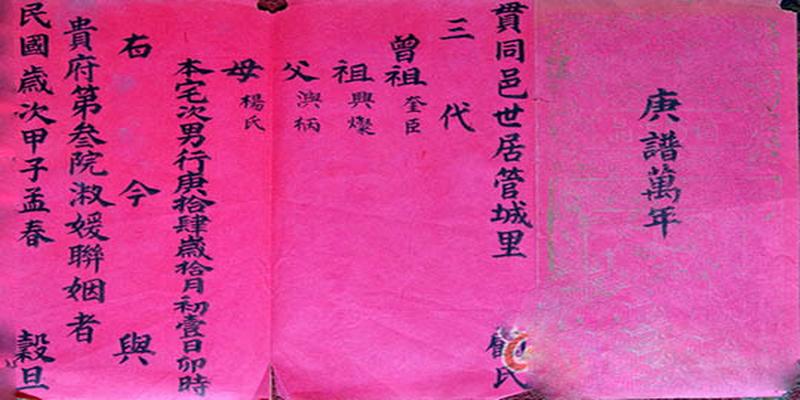 庚譜萬年
貫同邑世居管城里 氏
三代
曾祖 奎臣
祖 興燦
父 興柄
母 楊氏
本宅次男行庚拾肆歲拾月初壹日卯時
右 今 與
貴府第叁院淑媛聯姻者
民國歲次甲子孟春 穀旦